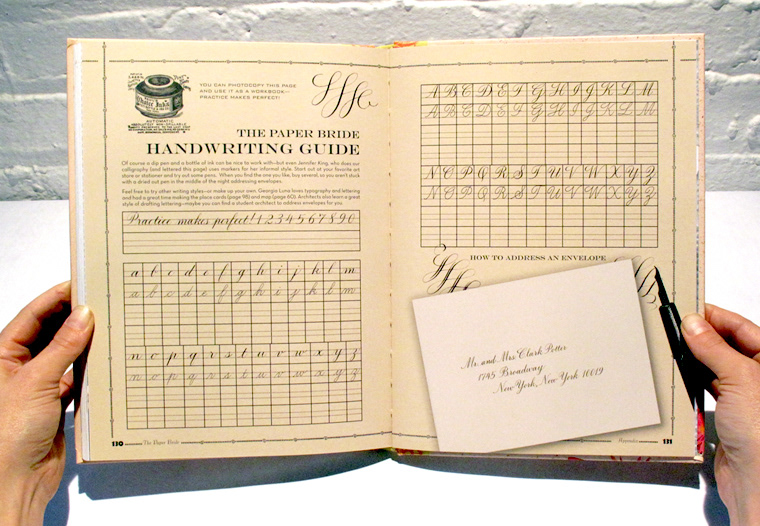 YOU CAN PHOTOCOPY THIS PAGE
AND USE IT AS A WORKBOOK—
PRACTICE MAKES PERFECT!
AUTOMATIC
THE PAPER BRIDE
HANDWRITING GUIDE
Of course a dip pen and a bottle of ink can be nice to work with—but even Jennifer King, who does our
calligraphy (and lettered this page) uses markers for her informal style. Start out at your favorite art
store or stationer and try out some pens. When you find the one you like, buy several, so you aren't stuck
with a dried out pen in the middle of the night addressing envelopes.
Feel free to try other writing styles—or make up your own. Georgia Luna loves typography and lettering
and had a great time making the place cards (page 98) and map (page 60). Architects also learn a great
style of drafting lettering—maybe you can find a student architect to address envelopes for you.
Practice makes perfect! 1 2 3 4 5 6 7 8 9 0
a b c d e f g h i j k l m
a b c d e f g h i j k l m
n o p q r s t u v w x y z
n o p q r s t u v w x y z
130 The Paper Bride
A B C D E F G H I J K L M
A B C D E F G H I J K L M
N O P Q R S T U V W X Y Z
N O P Q R S T U V W X Y Z
HOW TO ADDRESS AN ENVELOPE
Mr. and Mrs Clark Potter
1745 Broadway
New York, New York 10019
Appendix 131